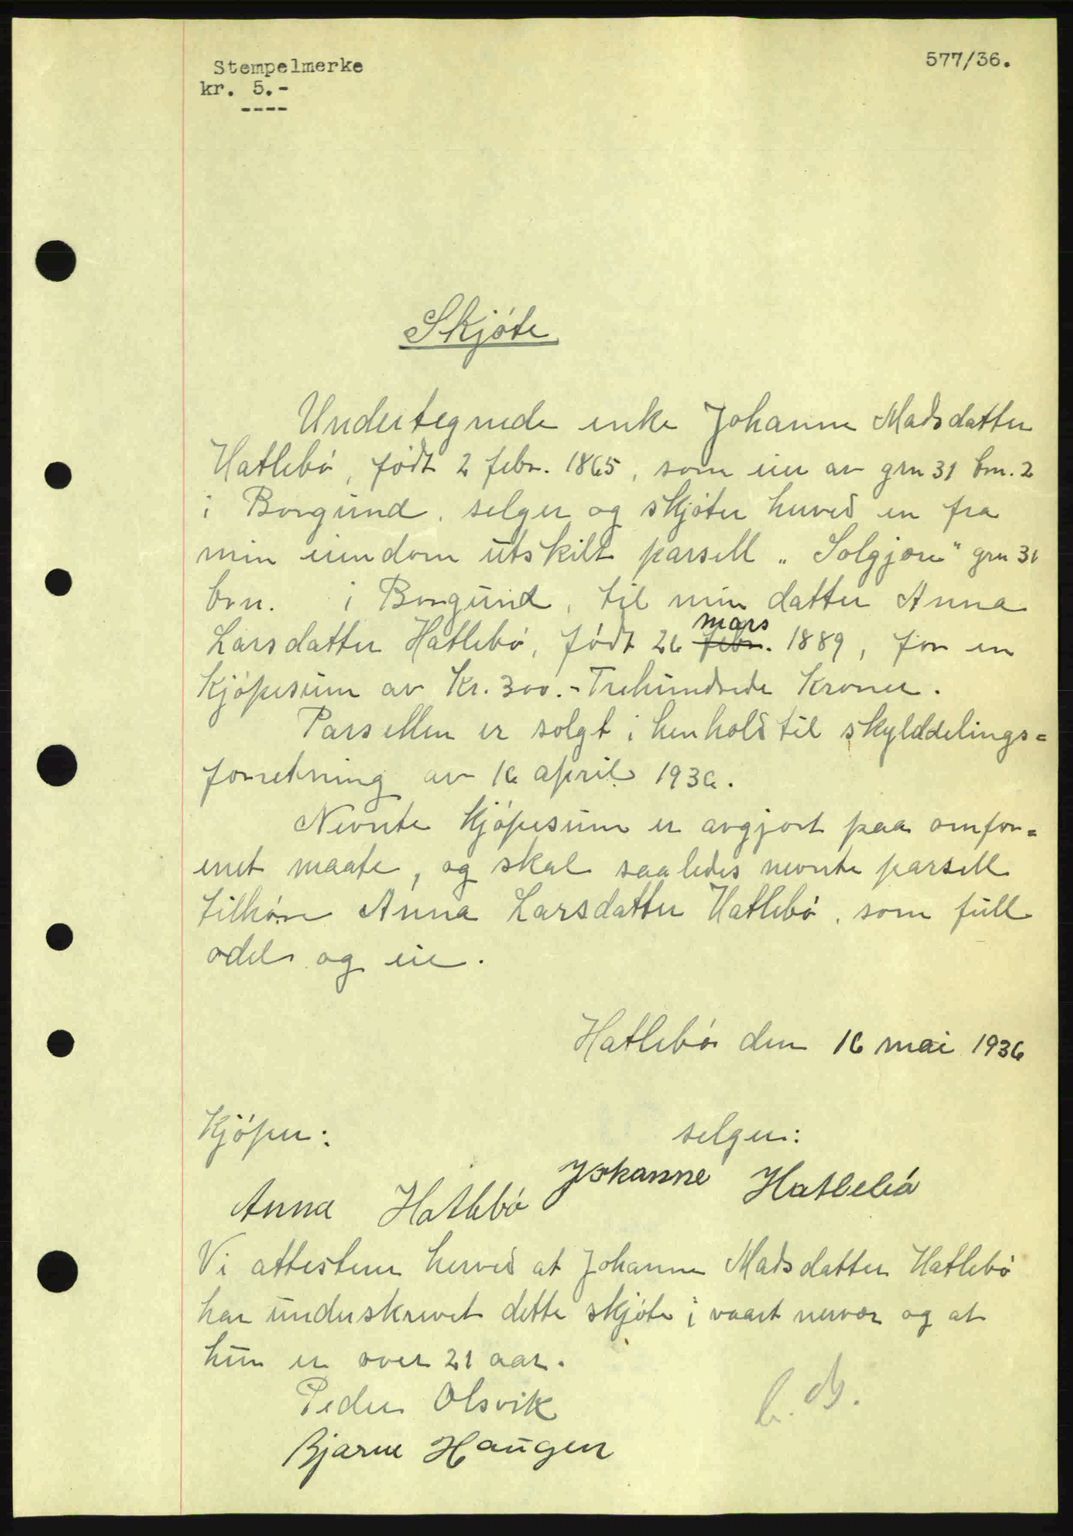 Stempelmerke
577/36.
kr. 5.-
----
Skjøte
Undertegnede enke Johanne Madsdatter
Hatlebø, født 2 febr. 1865, som eier av grn 31 brn. 2
i Borgund, selger og skjøter herved en fra
min eiendom utskilt parsell „Solgjøre" grn 31
brn. i Borgund, til min datter Anna
mars
Larsdatter Hatlebø, født 26 febr. 1889, for en
kjøpesum av Kr. 300.- Trehundrede Kroner.
Parsellen er solgt i henhold til skylddelings=
forretning av 16 april 1936.
Nevnte kjøpesum er avgjort paa omfor=
enet maate, og skal saaledes nevnte parsell
tilhøre Anna Larsdatter Hatlebø, som full
odel og eie.
Hatlebø den 16 mai 1936
Kjøper: selger:
Johanne Hatlebø
Anna Hatlebø
Vi attesterer herved at Johanne Madsdatter Hatlebø
har underskrevet dette skjøte i vaart nervær og at
hun er over 21 aar.
Peder Olsvik
Bjarne Haugen